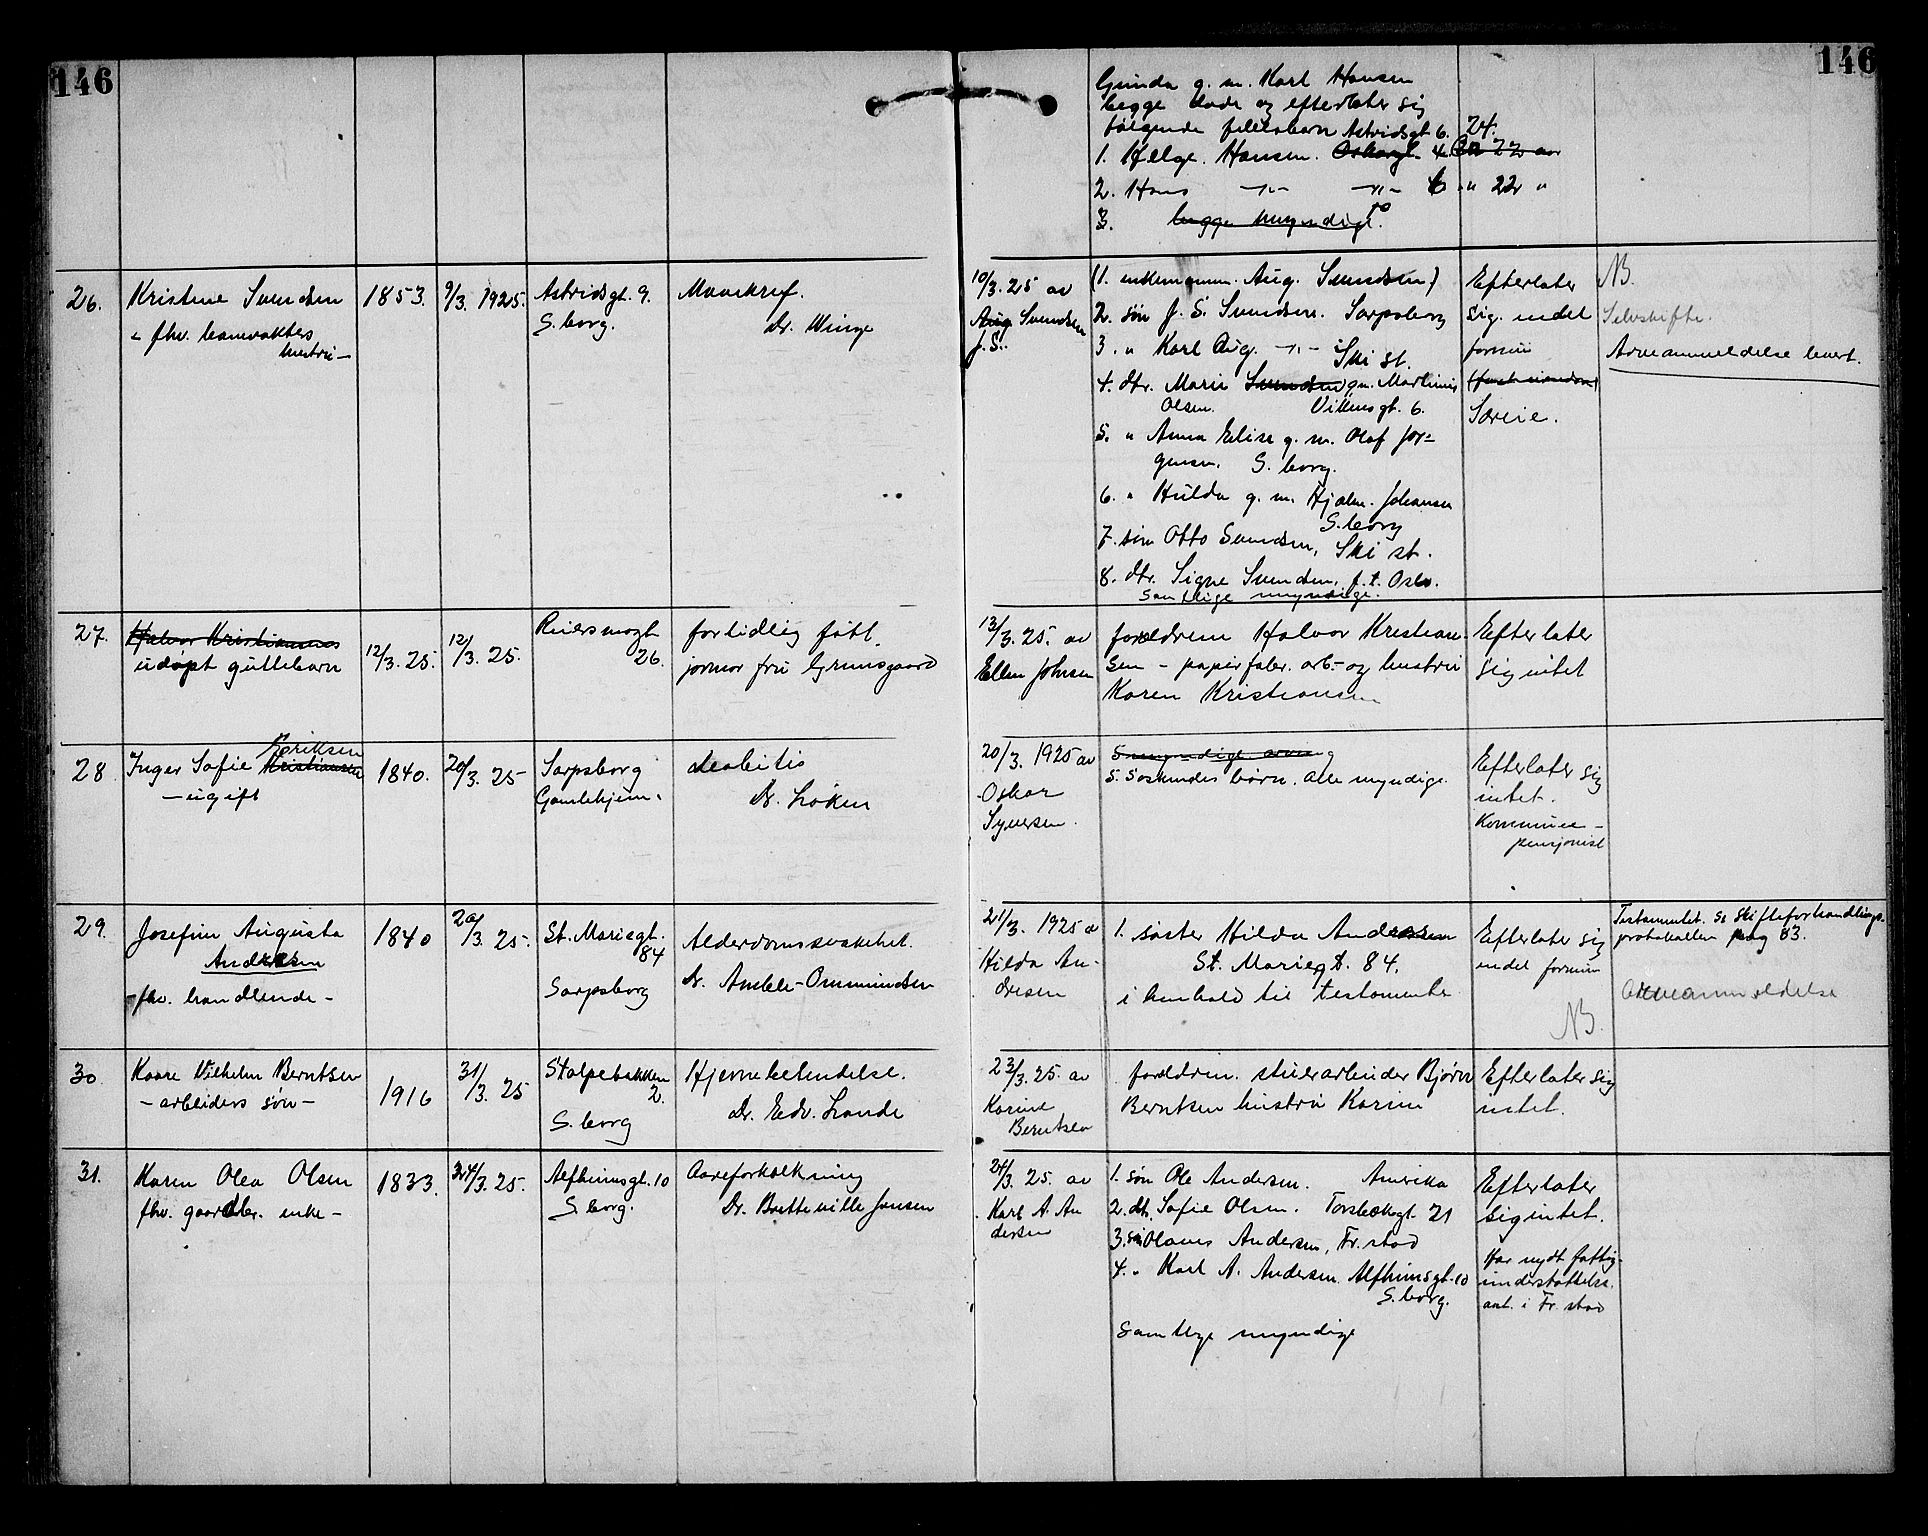 146
146
Gunda g. m. Karl Hansen
begge døde og efterlater sig
følgende fellesbarn Astridsgt 6. 24.
1. Helge Hansen. Oskarsgt. 4. 22 aar
2. Hans -"- -"- 6 " 22 "
3. begge myndige.
26. Kristine Svendsen
- fhv. banevakters
hustru -
1853.
9/3. 1925.
Astridsgt. 9.
S.borg.
Mavekref.
Dr. Winge
10/3. 25 av
Aug. Svendsen
J. S.
(1. enkemann. Aug. Svendsen)
2. søn J. S. Svendsen. Sarpsborg
3. " Karl Aug. -"- Ski st.
4. dtr. Marie Svendsen g.m. Martinius
Olsen. Villensgt. 6.
5. " Anna Elise g. m. Olaf Jør-
gensen. S. borg.
6. " Hulda g. m. Hjalm. Johansen
S. borg
7. søn Otto Svendsen, Ski st.
8. dtr. Signe Svendsen, f. t. Oslo.
samtlige myndige.
Efterlater
sig. endel
formue
Særeie.
NB.
Selvskifte.
Arveanmeldelse levert.
27. Halvor Kristiansens
udøpt guttebarn
12/3. 25.
12/3. 25.
Reiersmogt
26.
for tidlig født.
jormor fru Grimsgaard
13/3. 25. av
Ellen Johnsen
foreldrene Halvor Kristian-
sen - papirfabr. arb.- og hustru
Karen Kristiansen
Efterlater
sig intet
28. Inger Sofie Kristiansen Eriksen
- ugift
1840.
20/3. 25
Sarpsborg
Gamlehjem.
deabitis
Dr. Løken
20/3. 1925 av
Oskar
Syversen.
5 myndige arving
5. søskendes børn. alle myndige.
Efterlater sig
intet.
Kommune-
pensjonist
29. Josefine Augusta
Andresen
- fhv. handlende -
1840
20/3. 25.
St. Mariegt.
84
Sarpsborg
Alderdomssvakhet.
Dr. Amble-Ommundsen
21/3. 1925 a
Hilda An-
dresen
1. søster Hilda Andresen
St. Mariegt. 84.
i henhold til testamente
Efterlater sig
endel formue
NB.
Testamentet. Se Skifteforhandlings-
protokollen pag 83.
Arveanmeldelse
30. Kaare Vilhelm Berntsen
- arbeiders søn -
1916
31/3. 25
Stolpebakken
2.
S. borg
Hjernebetendelse.
Dr. Edv. Lande
23/3. 25. av
Karine
Berntsen
foreldrene. stuerarbeider Bjørn
Berntsen hustru Karine
Efterlater sig
intet.
31. Karen Olea Olsen
fhv. gaardbr. enke -
1833.
24/3. 25.
Alfheimsgt. 10
S. borg.
Aareforkalkning
Dr. Bretteville Jensen
24/3. 25. av
Karl A. An
dersen
1. søn Ole Andersen. Amerika
2. dtr. Sofie Olsen. Torsbekkgt. 21
3. søn Olaves Andersen, Fr.stad
4. " Karl A. Andersen. Alfheimsgt. 10
S. borg.
Samtlige myndige
Efterlater
sig intet.
Har nydt fattig-
understøttelse.
ant. i Fr. stad